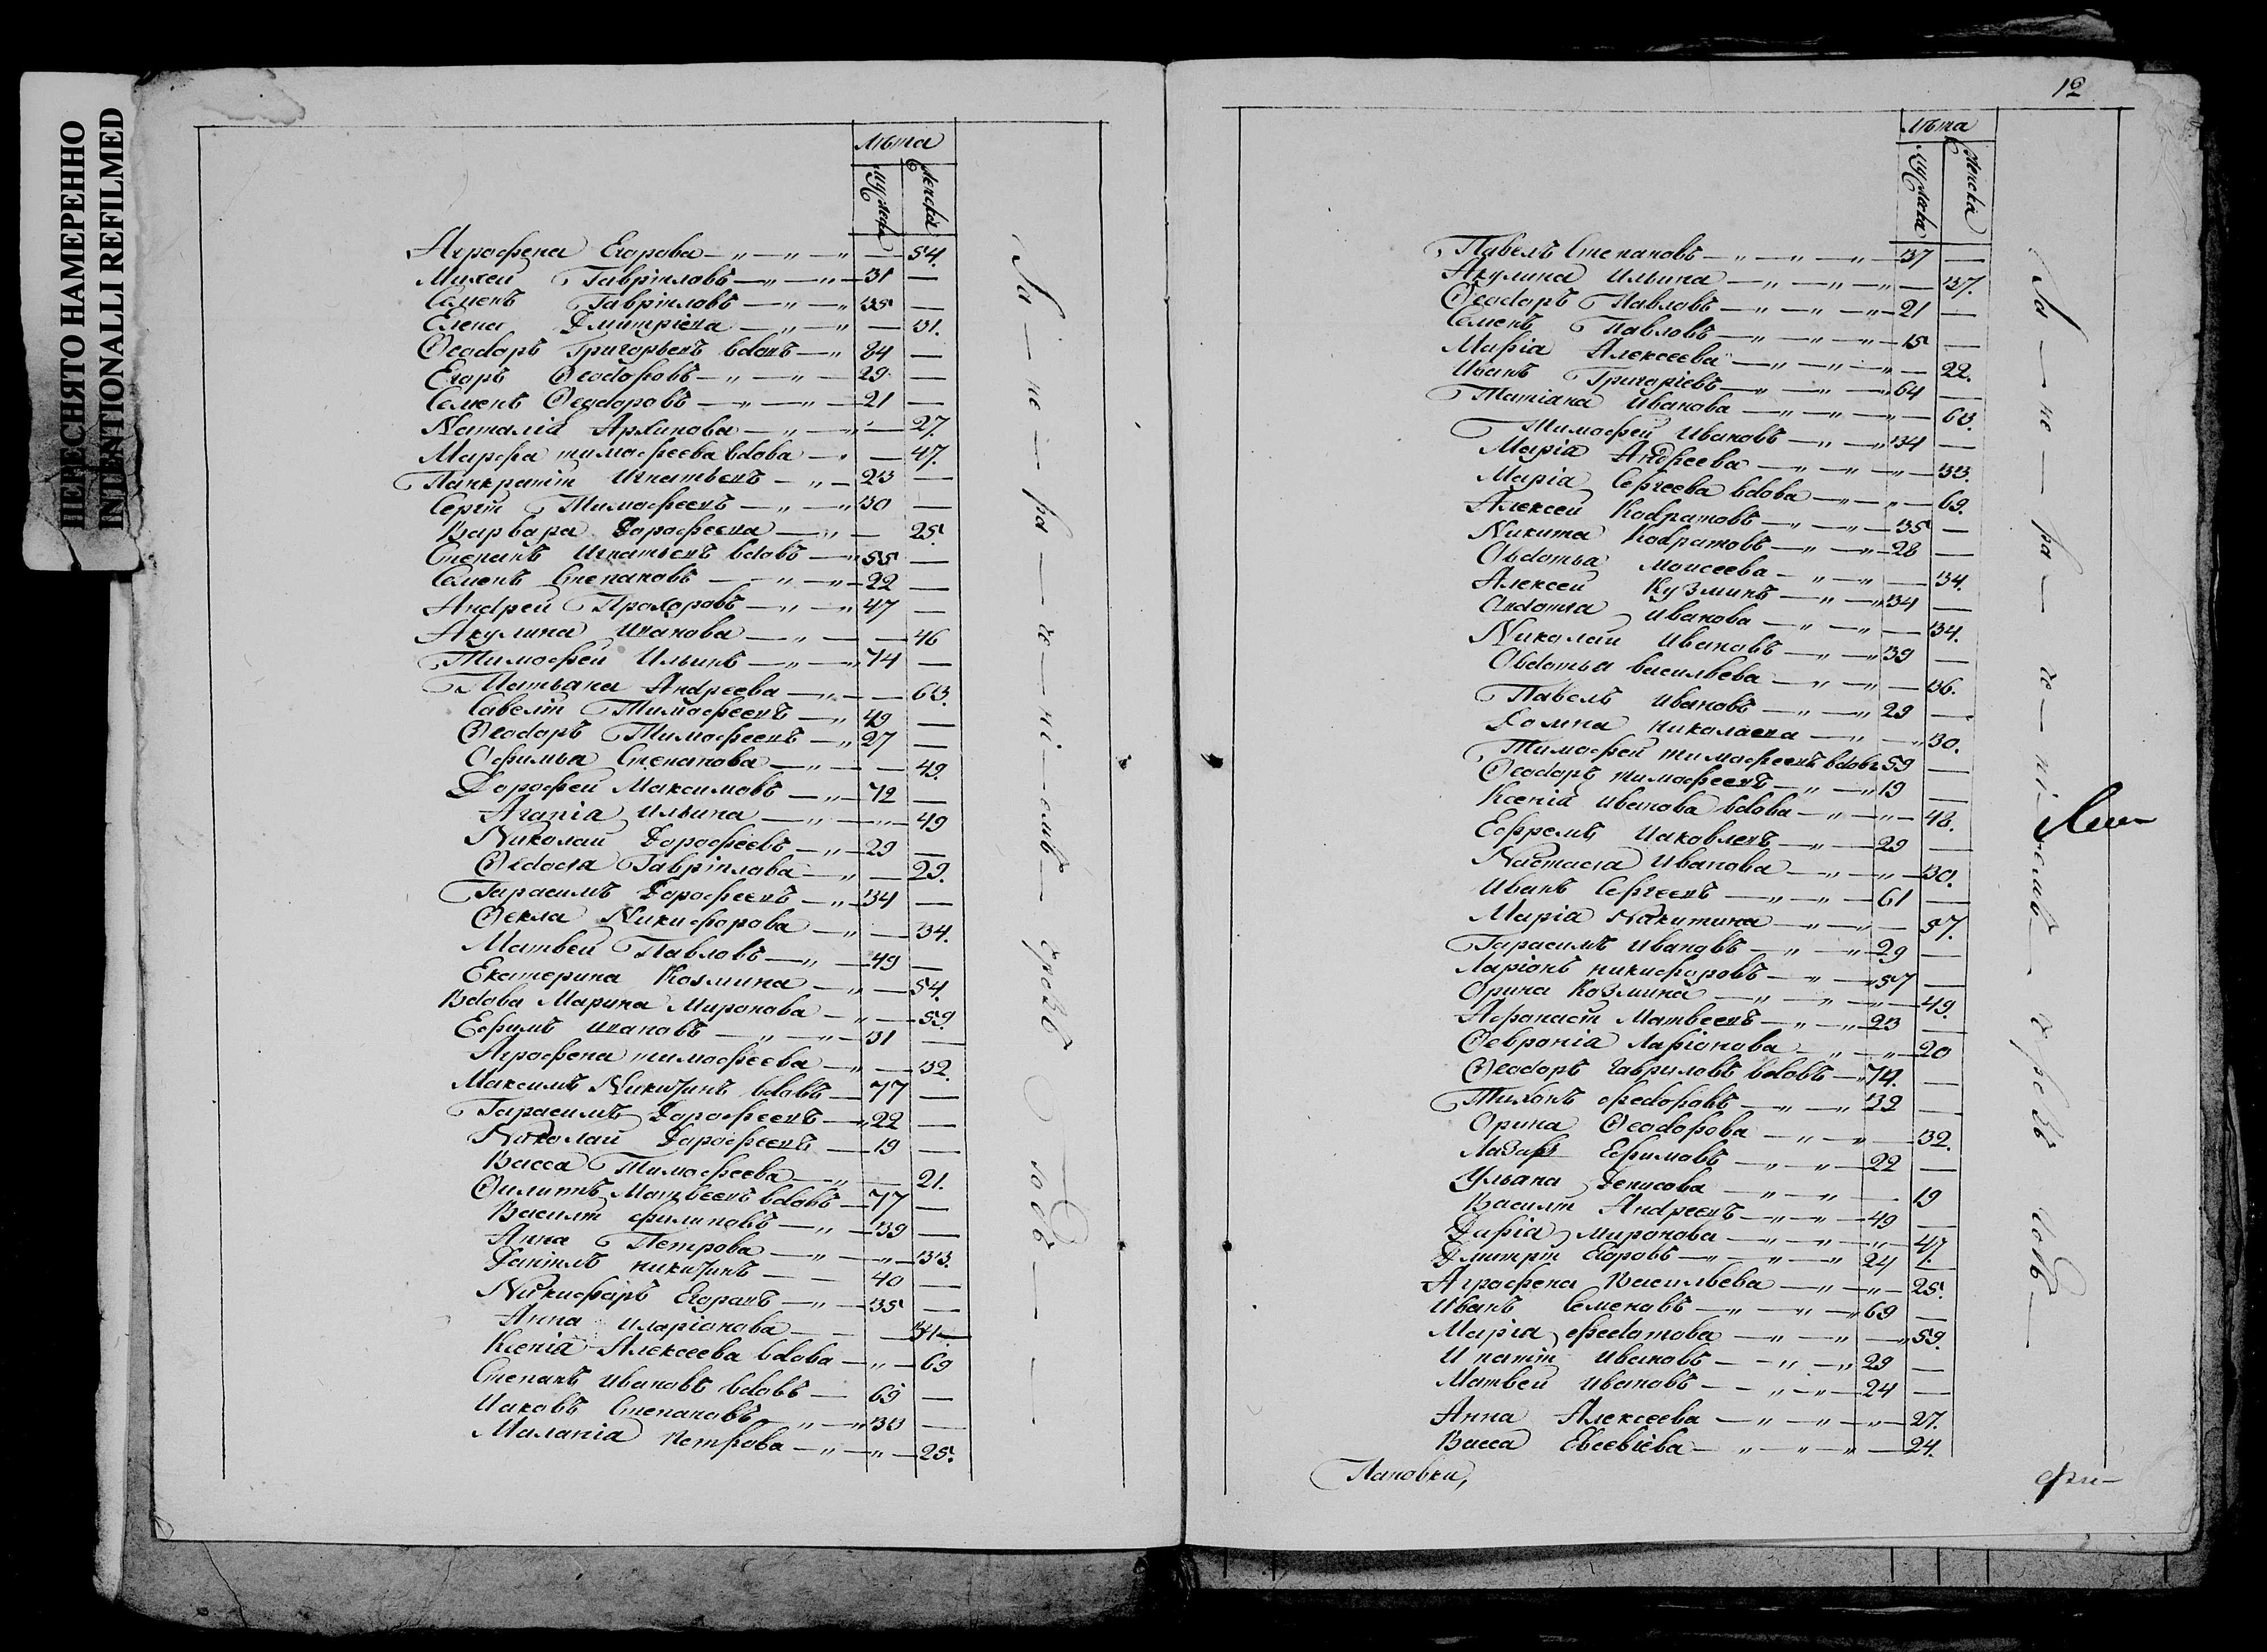 ПЕРЕСНЯТО НАМЕРЕННО
INTENTIONALLI REFILMED
Лѣта
мужеска женска
Агрофена Егорова 54.
Михей Гавріиловъ 31
Семенъ Гавріиловъ 35
Елена Дмитріева 31.
Ѳеодоръ Григорьевъ вдовъ 84
Егоръ Ѳеодоровъ 29
Семенъ Ѳеодоровъ 21
Наталія Архипова 27.
Марфа тимофеева вдова 47.
Панкратій Игнатьевъ 23
Сергій Тимофеевъ 30
Варвара Дорофеева 25.
Степанъ Игнатьевъ вдовъ 55
Семенъ Степановъ 22
Андрей Прохоровъ 47
Акулина Иванова 46
Тимофей Ильинъ 74
Татьяна Андреева 63.
Савелій Тимофеевъ 49
Ѳеодоръ Тимофеевъ 27
Офимья Степанова 49.
Дорофей Максимовъ 72
Агапія Ильина 49
Николай Дорофеевъ 29
Ѳедосія Гавріилова 29.
Гарасимъ Дорофеевъ 34
Ѳекла Никифорова 34.
Матвей Павловъ 49
Екатерина Козмина 54.
Вдова Марина Миронова 59.
Ефимъ Ивановъ 31
Агрофена тимофеева 32.
Максимъ Никитинъ вдовъ 77
Гарасимъ Дорофеевъ 22
Николай Дорофеевъ 19
Васса Тимофеева 21.
Филипъ Матвеевъ вдовъ 77
Василій филиповъ 39
Анна Петрова 33.
Даніилъ никитинъ 40
Никифоръ Егоровъ 35
Анна иларіонова 34
Ксенія Алексеева вдова 69
Степанъ Ивановъ вдовъ 69
Иаковъ Степановъ 33
Маланія петрова 25.
12
Лѣта
мужеска женска
Павелъ Степановъ 37
Акулина Ильина 37.
Ѳеодоръ Павловъ 21
Семенъ Павловъ 15
Марія Алексеева 22.
Иванъ Григоріевъ 64
Татіана Иванова 63.
Тимофей Ивановъ 34
Марія Андреева 33.
Марія Сергеева вдова 69.
Алексей Кодратовъ 35
Никита Кодратовъ 28
Овдотья Моисеева 34.
Алексей Кузминъ 34
Овдотья Иванова 34.
Николай Ивановъ 39
Овдотья васильева 36.
Павелъ Ивановъ 29
николаева 30.
Тимофей тимофеевъ вдовъ 59
Ѳеодоръ тимофеевъ 19
Ксенія Иванова вдова 48.
Ефремъ Иаковлевъ 29
Настасія Иванова 30.
Иванъ Сергеевъ 61
Марія Никитина 57.
Гарасимъ Ивановъ 29
Ларіонъ никифоровъ 57
Орина Козмина 49.
Афонасій Матвеевъ 23
Ѳевронія Ларіонова 20
Ѳеодоръ гавриловъ вдовъ 74.
Тихонъ федоровъ 32
Орина Ѳеодорова 32.
Лазарь Ефимовъ 22
Ульяна Денисова 19
Василій Андреевъ 49
Дарія миронова 47.
Дмитрій Егоровъ 24
Агрофена Васильева 25.
Иванъ Семеновъ 69
Марія федотова 59.
Ипатій Ивановъ 29
Матвей Ивановъ 24
Анна Алексеева 27.
Васса Евсевіева 24.